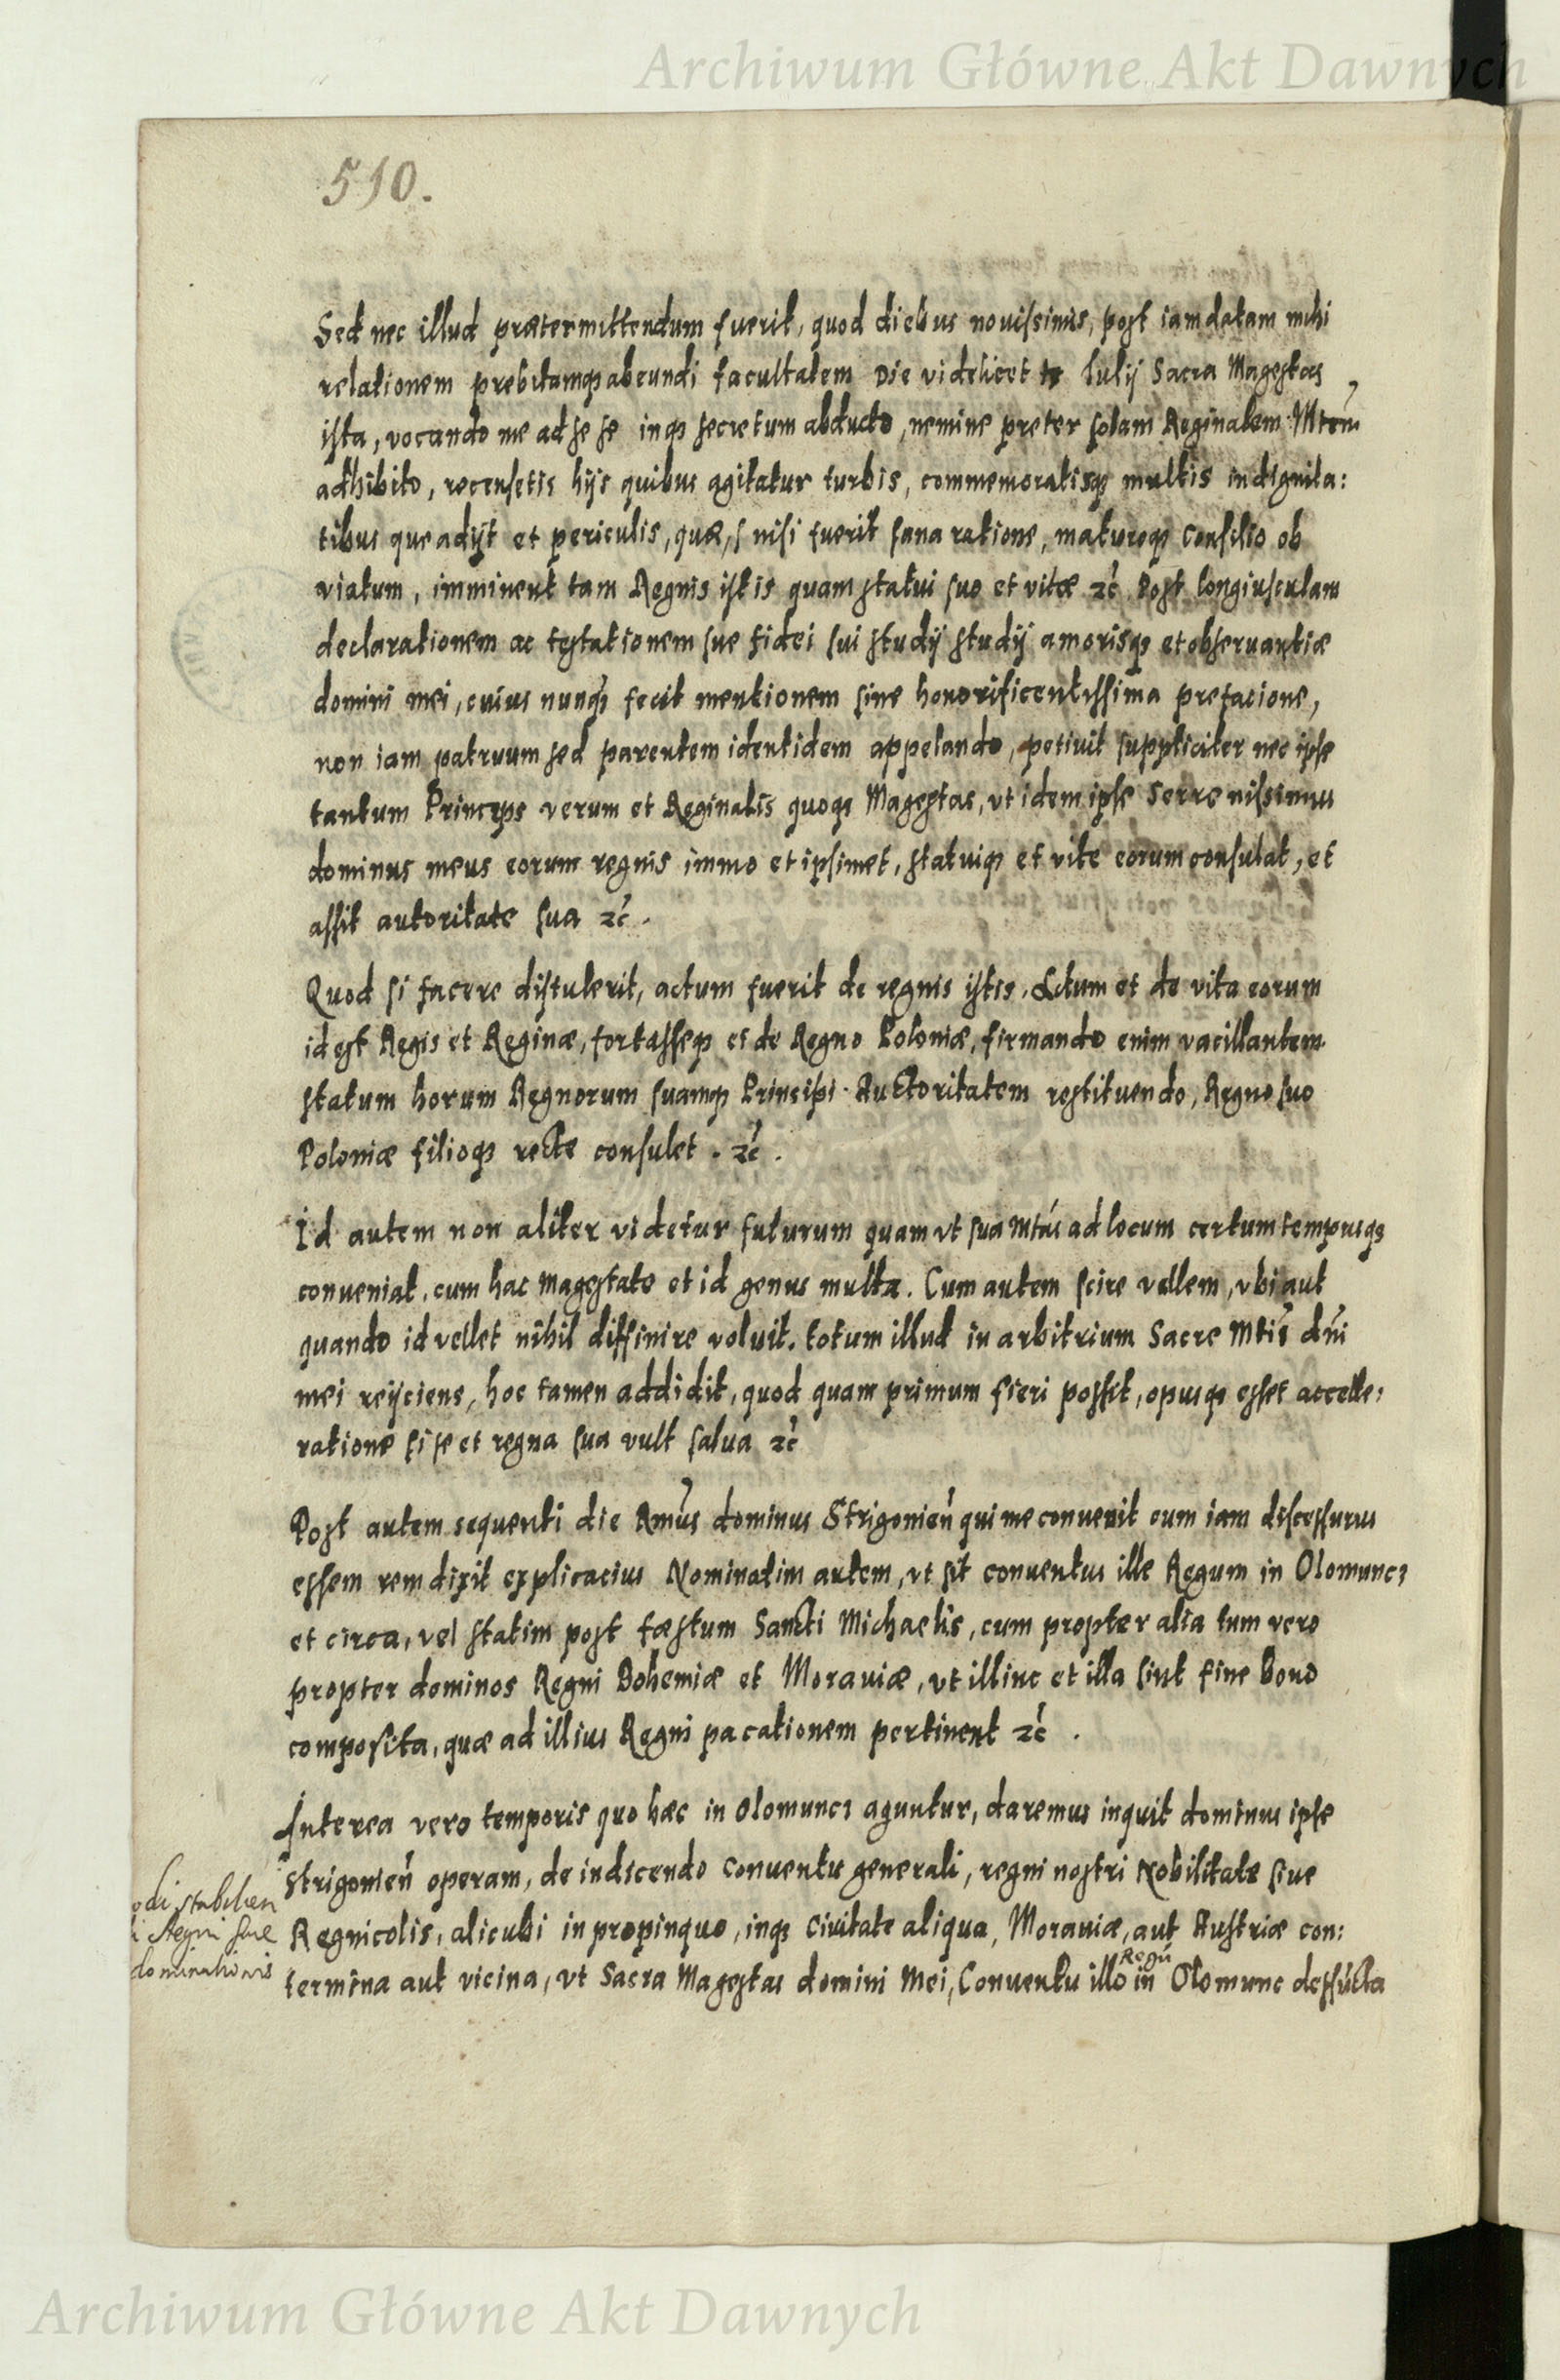 Archiwum Główne Akt Dawnych
510.
Sed nec illud prætermittendum fuerit, quod diebus nouissimis, post iam datam mihi
relationem prebitamqȝ abeundi facultatem Die videlicet Iulij Sacra Magestas
ista, vocando me ad se se inqȝ secretum abducto, nemine preter solam Reginalem Mtem
adhibito, recensetis hijs quibus agitatur turbis, commemoratisqȝ multis indignita:
tibus que adijt et periculis, quæ, nisi fuerit sana ratione, maturoqȝ Consilio ob
viatum, imminent tam Regnis istis quam statui suo et vitæ ⁊c̃ Post longiusculam
declarationem ac testationem sue fidei sui studij studij amorisqȝ et obseruantiæ
domini mei, cuius nunqȝ fecit mentionem sine honorificentissima prefacione,
non iam patruum sed parentem identidem appelando, petiuit suppliciter nec ipse
tantum Princeps verum et Reginalis quoqȝ Magestas, vt idem ipse Serrenissimus
dominus meus eorum regnis immo et ipsimet, statuiqȝ et vite eorum consulat, et
assit autoritate sua ⁊c̃.
Quod si facere distulerit, actum fuerit de regnis istis. Actum et de vita eorum
id est Regis et Reginæ, fortasseqȝ et de Regno Poloniæ, firmando enim vacillantem
statum horum Regnorum suamqȝ Principi Auctoritatem restituendo, Regno suo
Poloniæ filioqȝ recte consulet . ⁊c̃ .
Id autem non aliter videtur futurum quam vt sua Mtas ad locum certum tempusqȝ
conueniat, cum hac Magestate et id genus multa. Cum autem scire vellem, vbi aut
quando id vellet nihil diffinire voluit. totum illud in arbitrium Sacre Mtis dñi
mei reijciens, hoc tamen addidit, quod quam primum fieri possit, opusqȝ esset accelle:
ratione si se et regna sua vult salua ⁊c̃
Post autem sequenti die Rmus dominus Strigonien̄ qui me conuenit cum iam discessurus
essem rem dixit explicacius Nominatim autem, vt sit conuentus ille Regum in Olomuncȝ
et circa, vel statim post fæstum Sancti Michaelis, cum propter alia tum vero
propter dominos Regni Bohemiæ et Morauiæ, vt illinc et illa sint fine bono
composita, quæ ad illius Regni pacationem pertinent ⁊c̃ .
Interea vero temporis quo hæc in Olomuncȝ aguntur, daremus inquit dominus ipse
Strigonien̄ operam, de indicendo Conuentu generali, regni nostri Nobilitate siue
Regnicolis, alicubi in propinquo, inqȝ Ciuitate aliqua, Morauiæ, aut Austriæ con:
termina aut vicina, vt Sacra Magestas domini Mei, Conuentu illo Regū in Olomunc
odi stabilien
i Regni sue
dominationis
Archiwum Główne Akt Dawnych